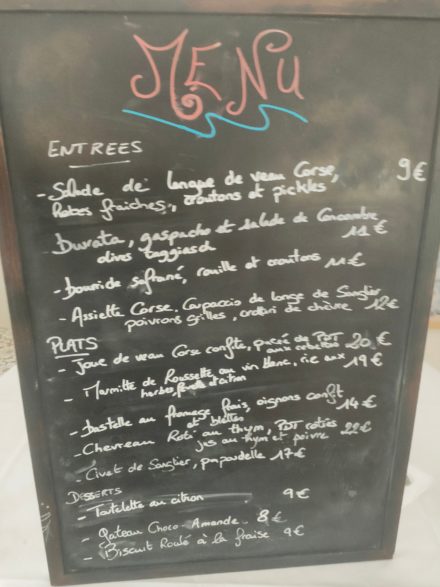 MENU
ENTREES
- Salade de langue de veau Corse, 9€
Herbes fraîches, croûtons et pickles
- burata, gaspacho et salade de Concombre
olives taggiasch 11€
- bourride safrané, rouille et croutons 11€
- Assiette Corse. Carpaccio de longe de Sanglier
poivrons grillés, crottin de chèvre 12€
PLATS
- Joue de veau Corse confite, purée de PDT 20€
- Marmitte de Roussette au vin blanc, riz aux 19€
herbes, citron
- bastelle au fromage frais, oignons confit
et blettes 14€
- Chevreau Roti au thym, PDT roties 22€
jus au thym et poivre
- Civet de Sanglier, pappardelle 17€
DESSERTS
- Tartelette au citron 9€
- Gateau Choco-Amande. 8€
- Biscuit Roulé à la fraise 9€